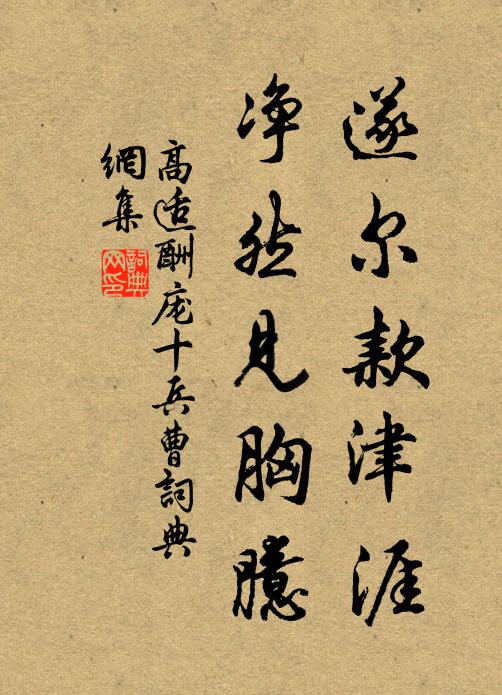 遂尔款津涯
净然见胸臆
高适酬庞十兵曹詞典
網集
詞典
网印